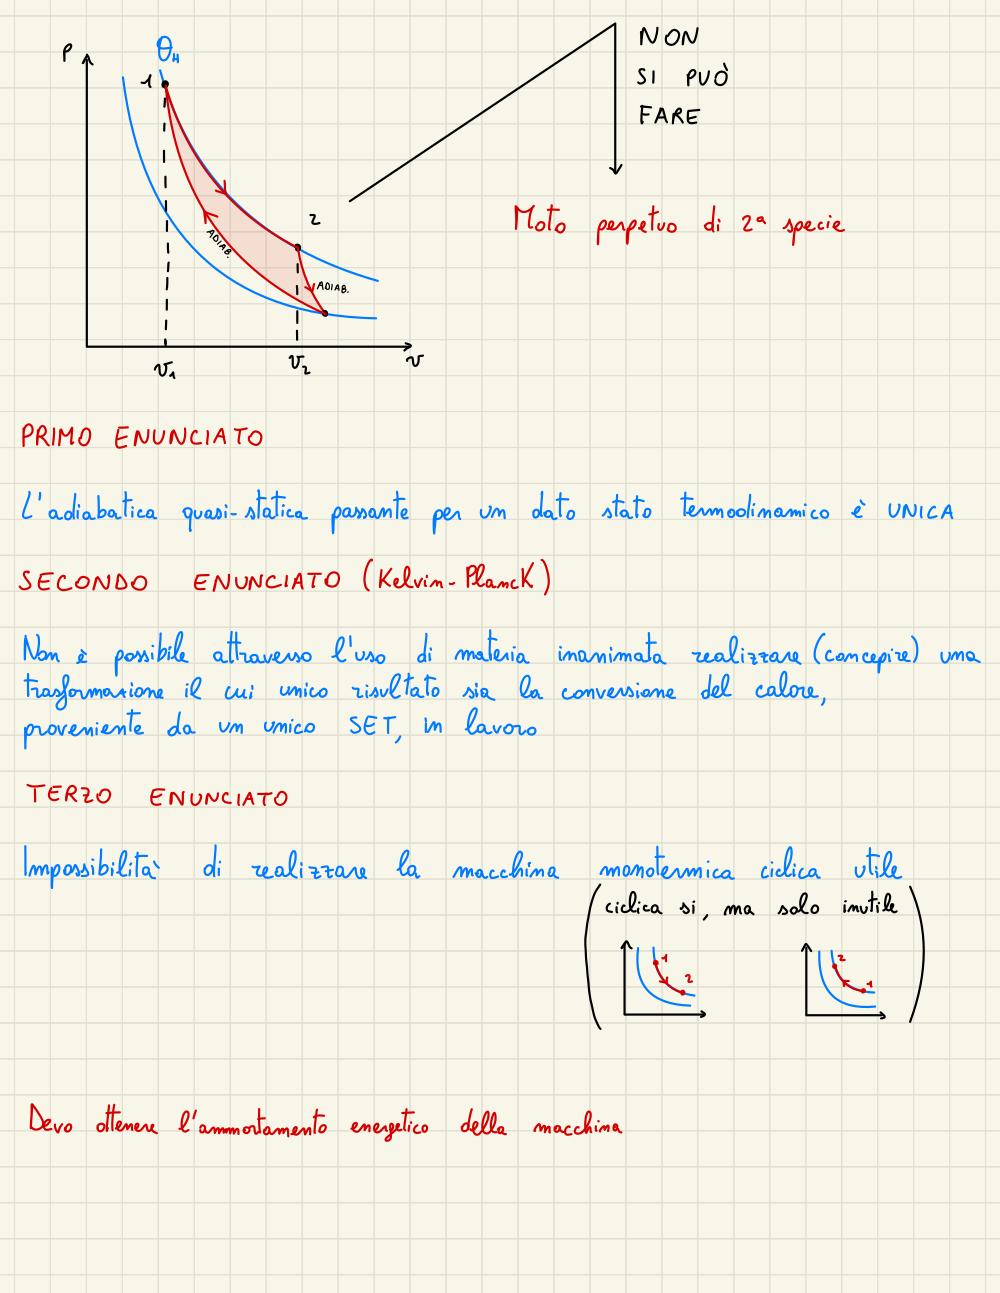 P
θH
1
NON
SI PUÒ
FARE
2
Moto perpetuo di 2ª specie
ADIAB.
ADIAB.
v1
v2
v
PRIMO ENUNCIATO
L'adiabatica quasi-statica passante per un dato stato termodinamico è UNICA
SECONDO ENUNCIATO (Kelvin-Planck)
Non è possibile attraverso l'uso di materia inanimata realizzare (concepire) una
trasformazione il cui unico risultato sia la conversione del calore,
proveniente da un unico SET, in lavoro
TERZO ENUNCIATO
Impossibilità di realizzare la macchina monotermica ciclica utile
(ciclica si, ma solo inutile)
1
2
2
1
Devo ottenere l'ammortamento energetico della macchina